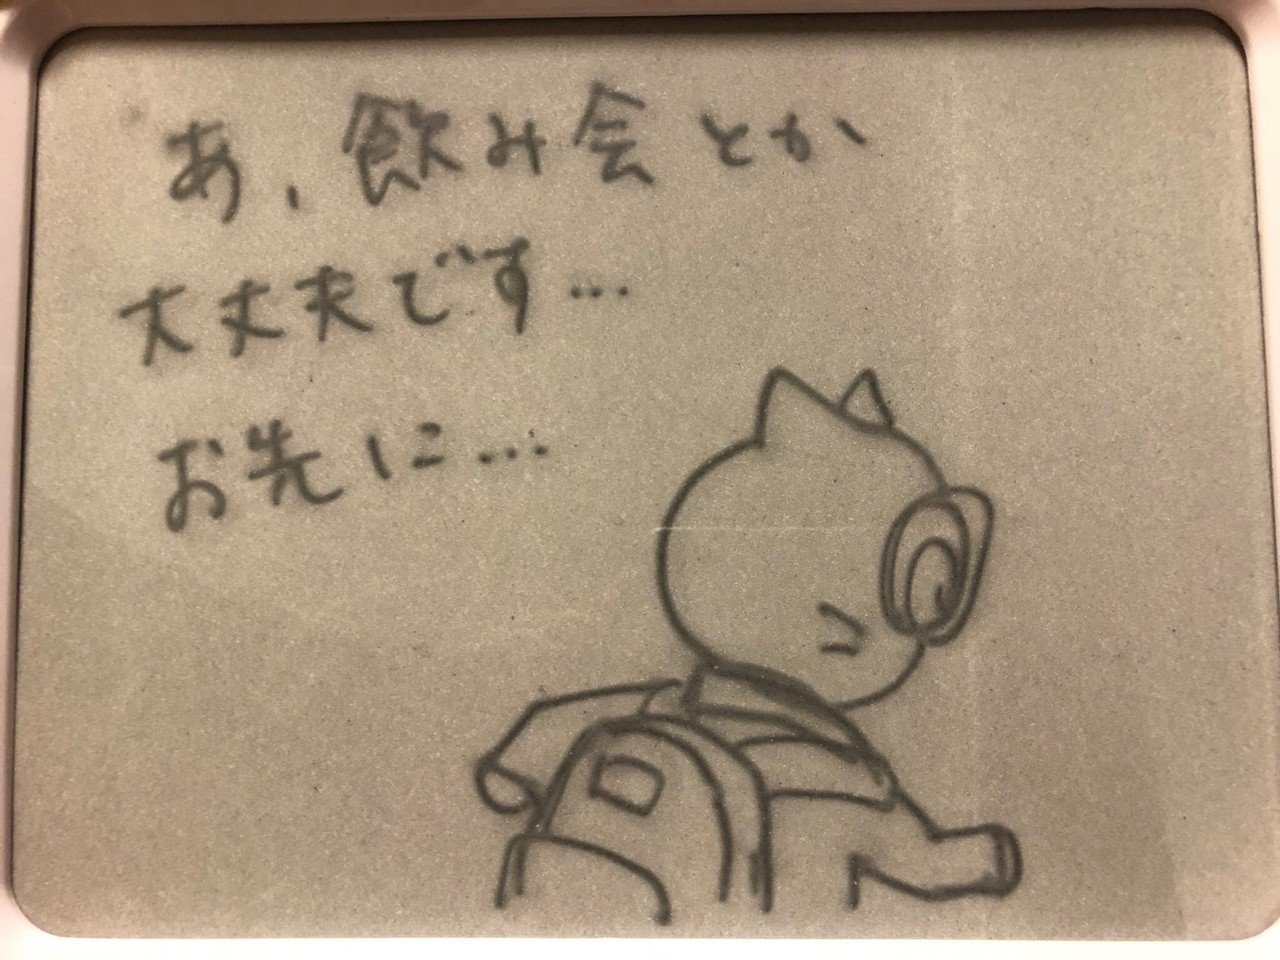 あ、飲み会とか
大丈夫です…
お先に…